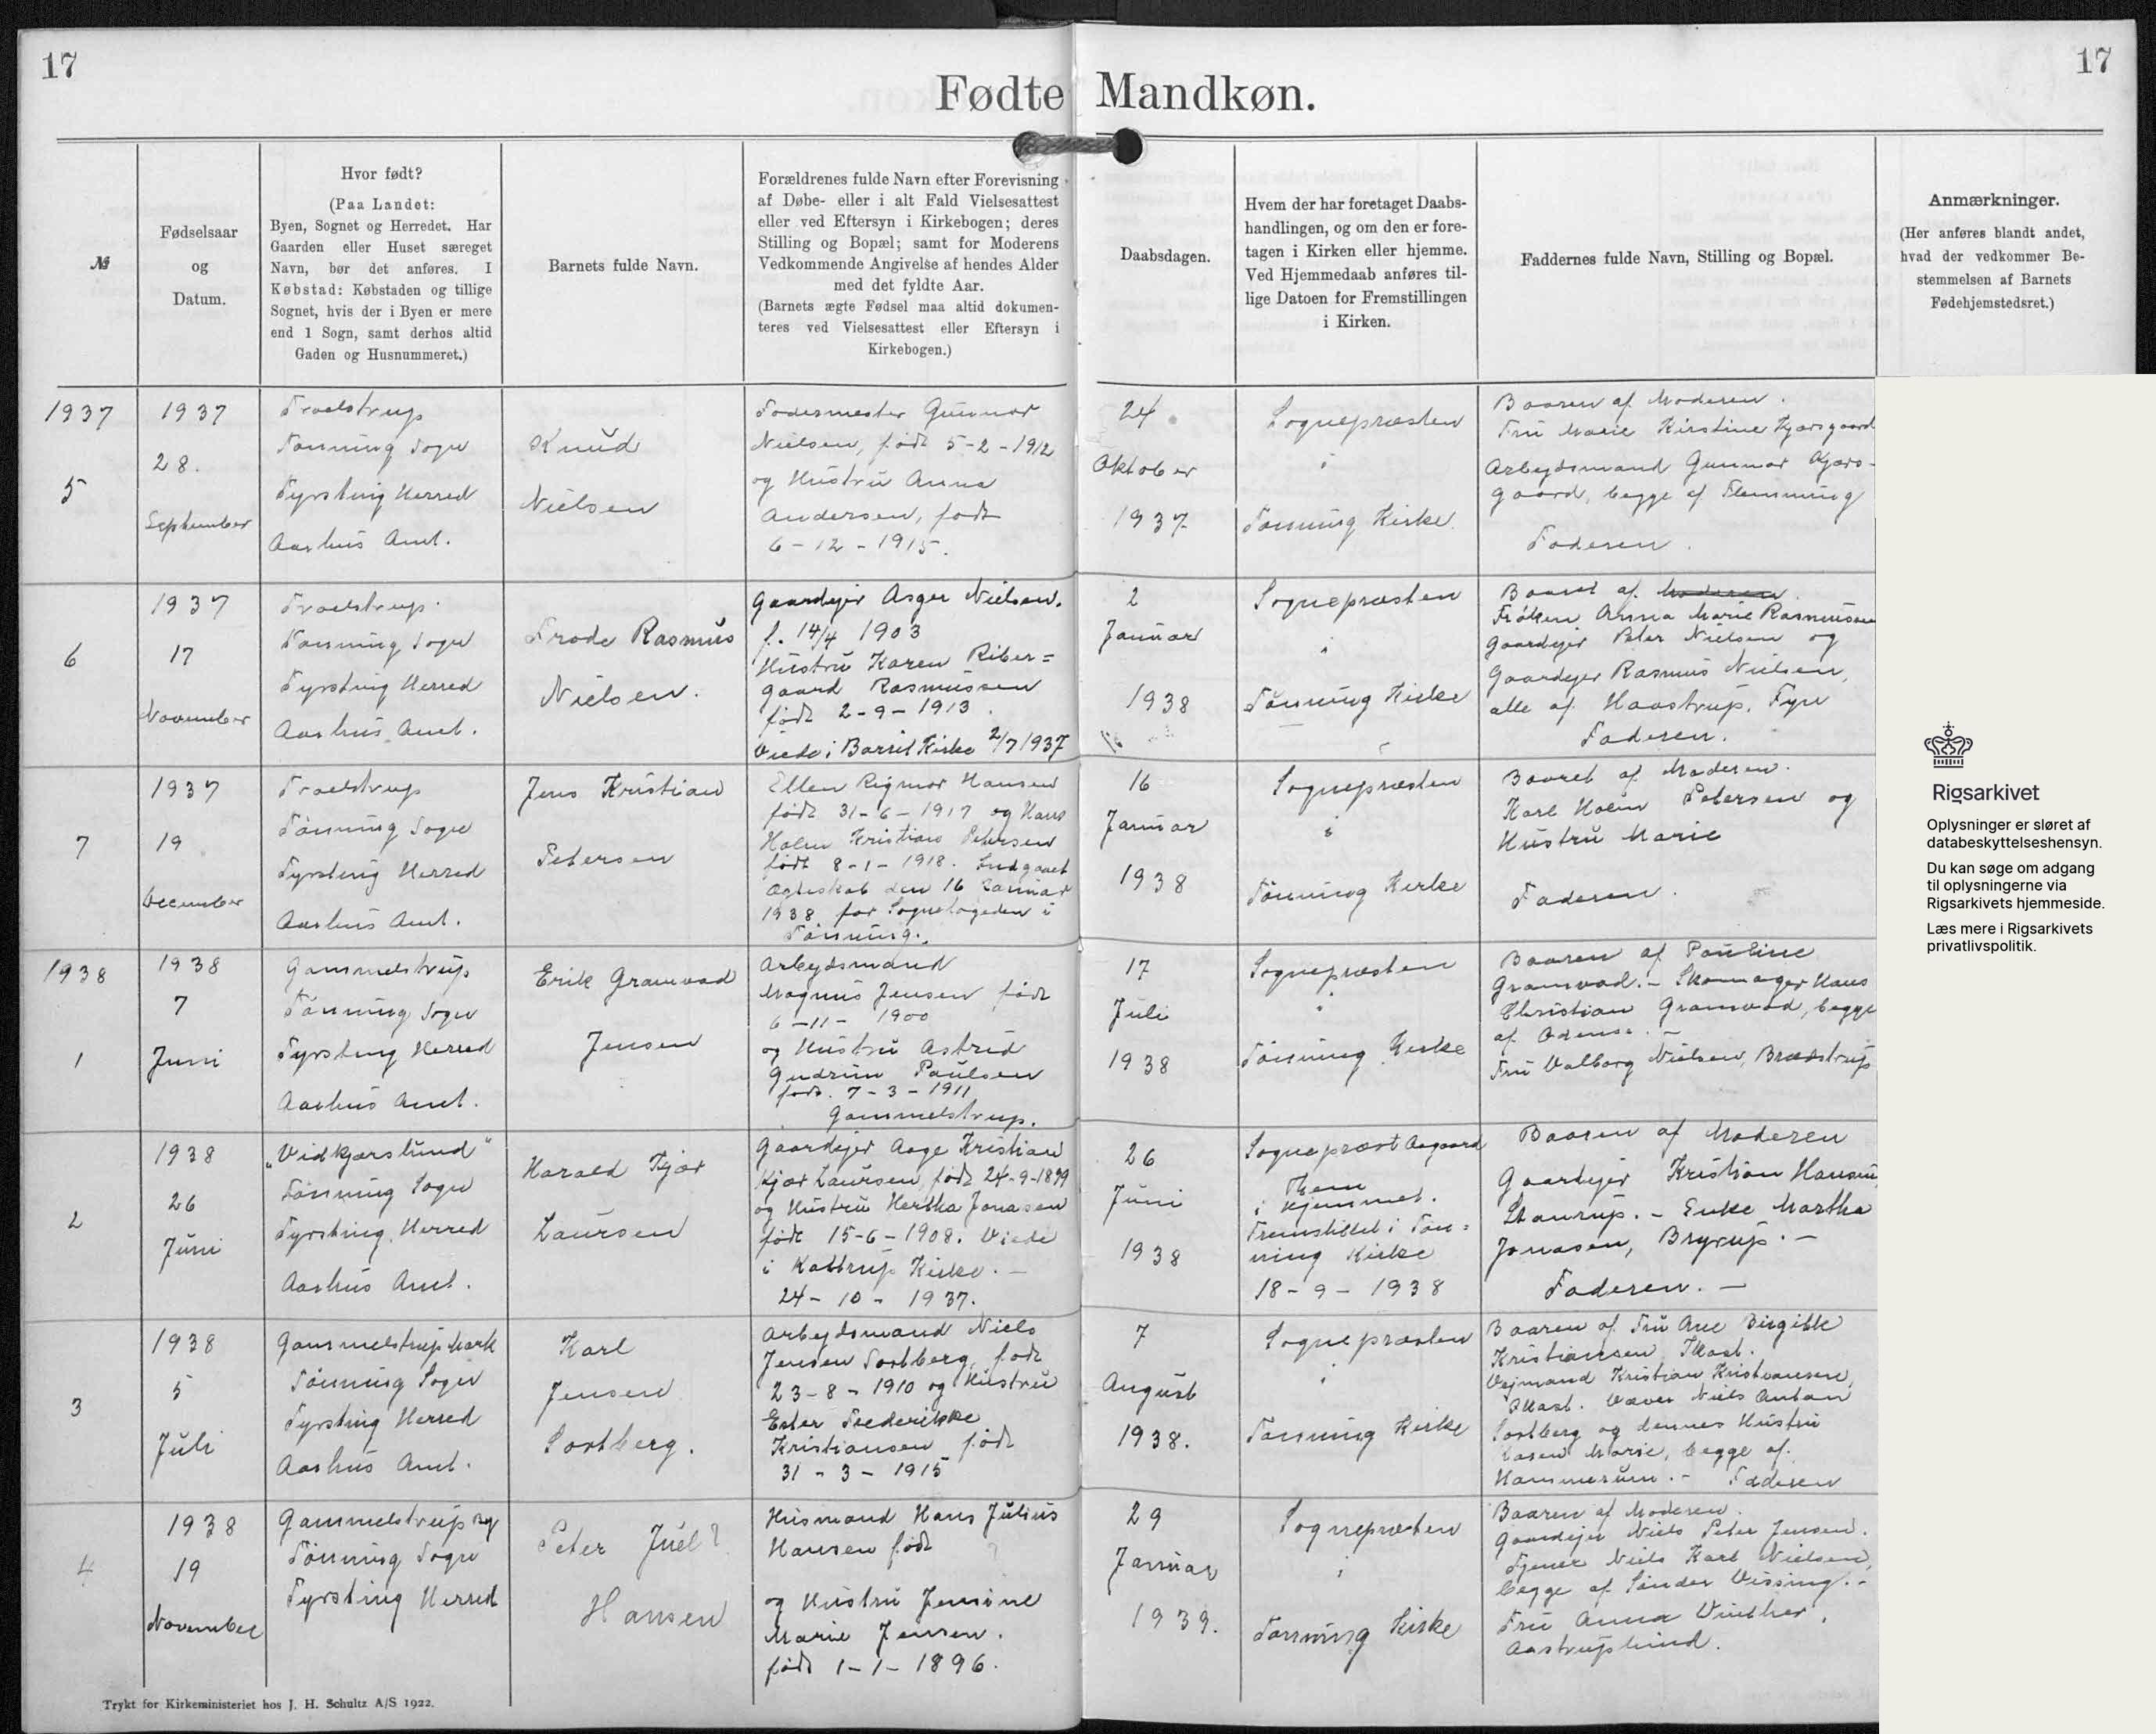 17
17
Fødte Mandkøn.
№
Fødselsaar
og
Datum.
Hvor født?
(Paa Landet:
Byen, Sognet og Herredet. Har
Gaarden eller Huset særeget
Navn, bør det anføres. I
Købstad: Købstaden og tillige
Sognet, hvis der i Byen er mere
end 1 Sogn, samt derhos altid
Gaden og Husnummeret.)
Barnets fulde Navn.
Forældrenes fulde Navn efter Forevisning
af Døbe- eller i alt Fald Vielsesattest
eller ved Eftersyn i Kirkebogen; deres
Stilling og Bopæl; samt for Moderens
Vedkommende Angivelse af hendes Alder
med det fyldte Aar.
(Barnets ægte Fødsel maa altid dokumen-
teres ved Vielsesattest eller Eftersyn i
Kirkebogen.)
Daabsdagen.
Hvem der har foretaget Daabs-
handlingen, og om den er fore-
tagen i Kirken eller hjemme.
Ved Hjemmedaab anføres til-
lige Datoen for Fremstillingen
i Kirken.
Faddernes fulde Navn, Stilling og Bopæl.
Anmærkninger.
(Her anføres blandt andet,
hvad der vedkommer Be-
stemmelsen af Barnets
Fødehjemstedsret.)
1937
5
1937
28.
September
Træelstrup
Tønning Sogn
Tyrsting Herred
Aarhus Amt.
Knud
Nielsen
Fodermester Gunnar
Nielsen, født 5-2-1912
og Hustru Anna
Andersen, født
6-12-1915.
24
Oktober
1937
Sognepræsten
i
Tønning Kirke.
Baaren af Moderen.
Fru Marie Kirstine Kjærsgaard
Arbejdsmand Gunnar Kjærs-
gaard, begge af Flemming
Faderen.
6
1937
17
November
Træelstrup.
Tønning Sogn
Tyrsting Herred
Aarhus Amt.
Frode Rasmus
Nielsen.
Gaardejer Asger Nielsen.
f. 14/4 1903
Hustru Karen Riber=
gaard Rasmussen
født 2-9-1913.
Viede i Barrit Kirke 2/7 1937
2
Januar
1938
Sognepræsten
i
Tønning Kirke
Baaret af Moderen.
Frøken Anna Marie Rasmussen
Gaardejer Peter Nielsen og
Gaardejer Rasmus Nielsen,
alle af Haastrup, Fyn
Faderen.
7
1937
19
December
Træelstrup
Tønning Sogn
Tyrsting Herred
Aarhus Amt.
Jens Kristian
Petersen
Ellen Rigmor Hansen
født 31-6-1917 og Hans
Holm Kristian Petersen
født 8-1-1918. Indgaaet
Ægteskab den 16 Januar
1938 for Sognefogeden i
Tønning.
16
Januar
1938
Sognepræsten
i
Tønning Kirke
Baaret af Moderen.
Karl Holm Petersen og
Hustru Marie
Faderen.
1938
1
1938
7
Juni
Gammelstrup
Tønning Sogn
Tyrsting Herred
Aarhus Amt.
Erik Gramvad
Jensen
Arbejdsmand
Magnus Jensen født
6-11-1900
og Hustru Astrid
Gudrun Paulsen
født. 7-3-1911
Gammelstrup.
17
Juli
1938
Sognepræsten
i
Tønning Kirke
Baaren af Pauline
Gramvad.- Skomager Hans
Christian Gramvad, begge
af Odense.-
Fru Valborg Nielsen, Brædstrup
2
1938
26
Juni
"Vidkjærslund"
Tønning Sogn
Tyrsting Herred
Aarhus Amt.
Harald Kjær
Laursen
Gaardejer Aage Kristian
Kjær Laursen, født 24-9-1899
og Hustru Hertha Jonasen
født 15-6-1908. Viede
i Kattrup Kirke.-
24-10-1937.
26
Juni
1938
Sognepræst Aagaard
Them
i Hjemmet.
Fremstillet i Tøn=
ning Kirke
18-9-1938
Baaren af Moderen
Gaardejer Kristian Hansen
Staurup.- Enke Martha
Jonasen, Bryrup.-
Faderen.-
3
1938
5
Juli
Gammelstrup Mark
Tønning Sogn
Tyrsting Herred
Aarhus Amt.
Karl
Jensen
Sortberg.
Arbejdsmand Niels
Jensen Sortberg, født
23-8-1910 og Hustru
Ester Frederikke
Kristiansen født
31-3-1915
7
August
1938.
Sognepræsten
i
Tønning Kirke
Baaren af Fru Ane Birgitte
Kristiansen, Ikast.
Vejmand Kristian Kristiansen,
Ikast. Væver Niels Anton
Sortberg og dennes Hustru
Marie, begge af
Hammerum.- Faderen
4
1938
19
November
Gammelstrup By
Tønning Sogn
Tyrsting Herred
Peter Juel?
Hansen
Husmand Hans Julius
Hansen født ?
og Hustru Jensine
Marie Jensen.
født 1-1-1896.
29
Januar
1939.
Sognepræsten
i
Tønning Kirke
Baaren af Moderen.
Gaardejer Niels Peter Jensen.
Tjener Niels Karl Nielsen,
begge af Sønder Vissing.-
Fru Anna Vinther,
Aastruplund.
Trykt for Kirkeministeriet hos J. H. Schultz A/S 1922.
Rigsarkivet
Oplysninger er sløret af
databeskyttelseshensyn.
Du kan søge om adgang
til oplysningerne via
Rigsarkivets hjemmeside.
Læs mere i Rigsarkivets
privatlivspolitik.